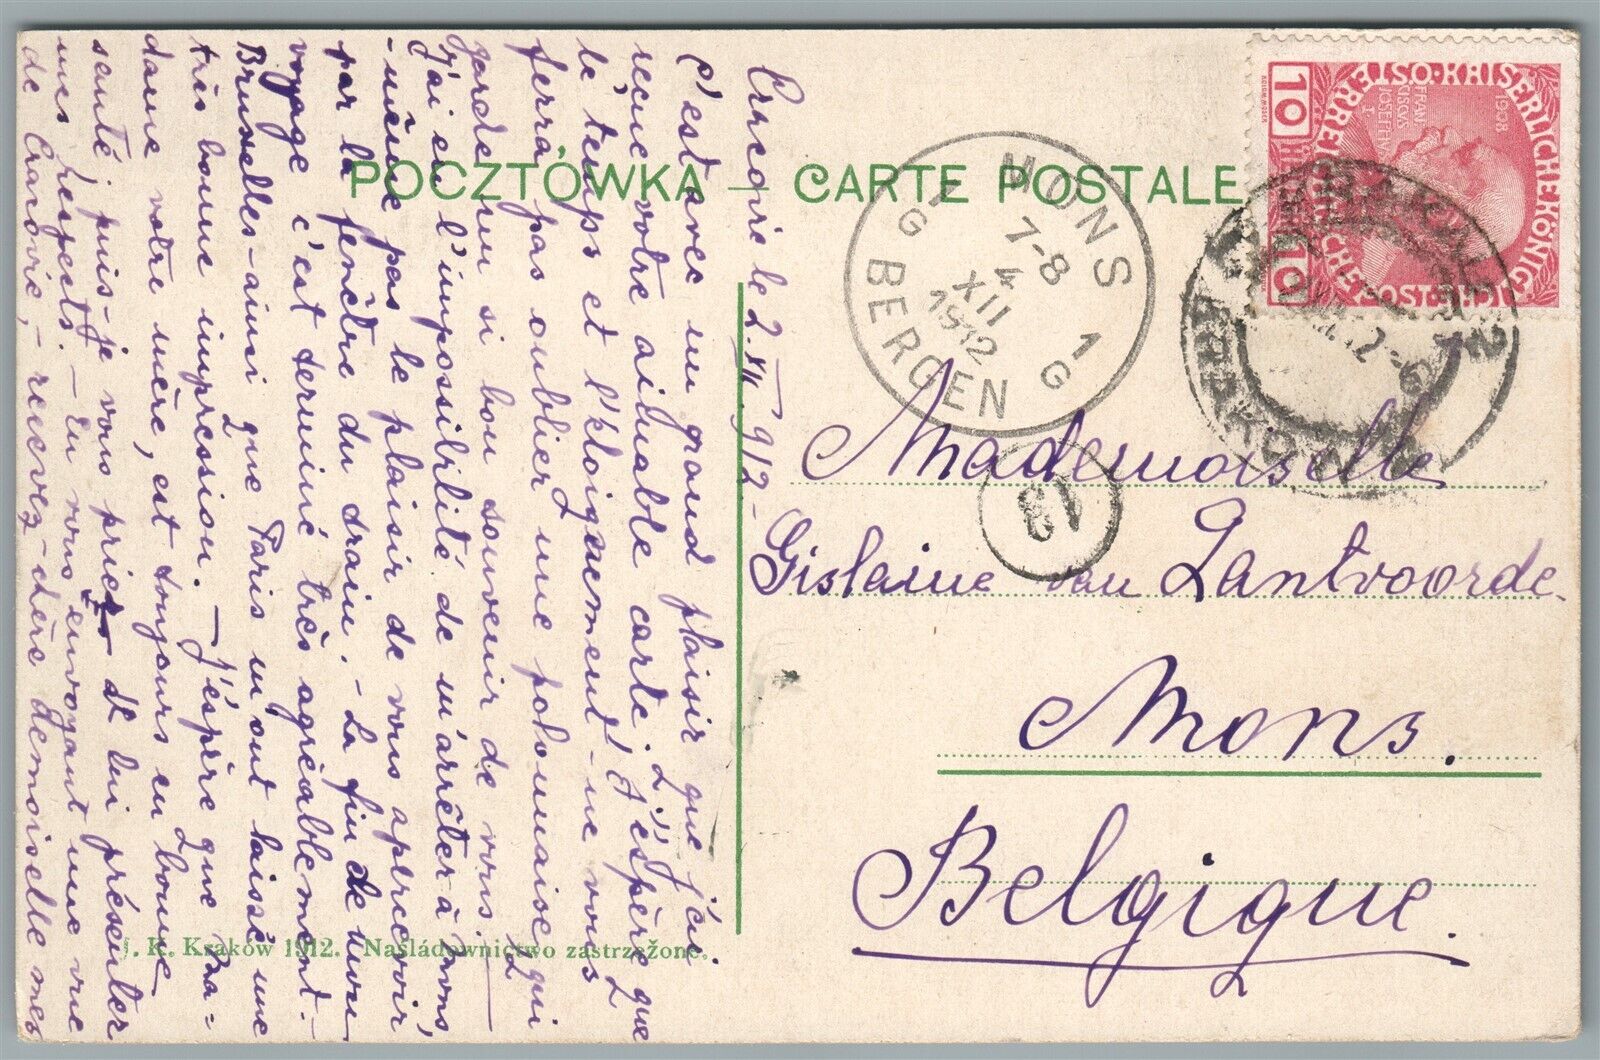 POCZTÓWKA — CARTE POSTALE
10 10
KAISERLICHE KÖNIGL
1908
FRAN
CISCUS
JOSEPH
I
MONS
7-8
4
XII
1912
1 G
1 G
BERGEN
13
Cracovie le 2.XII.912-
C'est avec un grand plaisir que j'ai
recue votre aimable carte. J'éspère que
le temps et l'éloignement-ne vous
ferra pas oublier une polonaise qui
garde un si bon souvenir de vous. —
J'ai eu l'impossibilité de m'arrêter à Mons,
-même pas le plaisir de vous apercevoir
par la fenêtre du train. - La fin de mon
voyage c'est terminé très agréablement.-
Bruxelles-ainsi que Paris m'ont laissé une
très bonne impression. — J'éspère que Ma=
dame votre mère, est toujours en bonne
santé, puis-je vous prier d lui présenter
mes respects. - En vous envoyant une vue
de Cracovie, - recevez-chère demoiselle mes
Mademoiselle
Gislaine van Zantvoorde.
Mons.
Belgique.
. K. Kraków 1912. Naśladownictwo zastrzeżone.